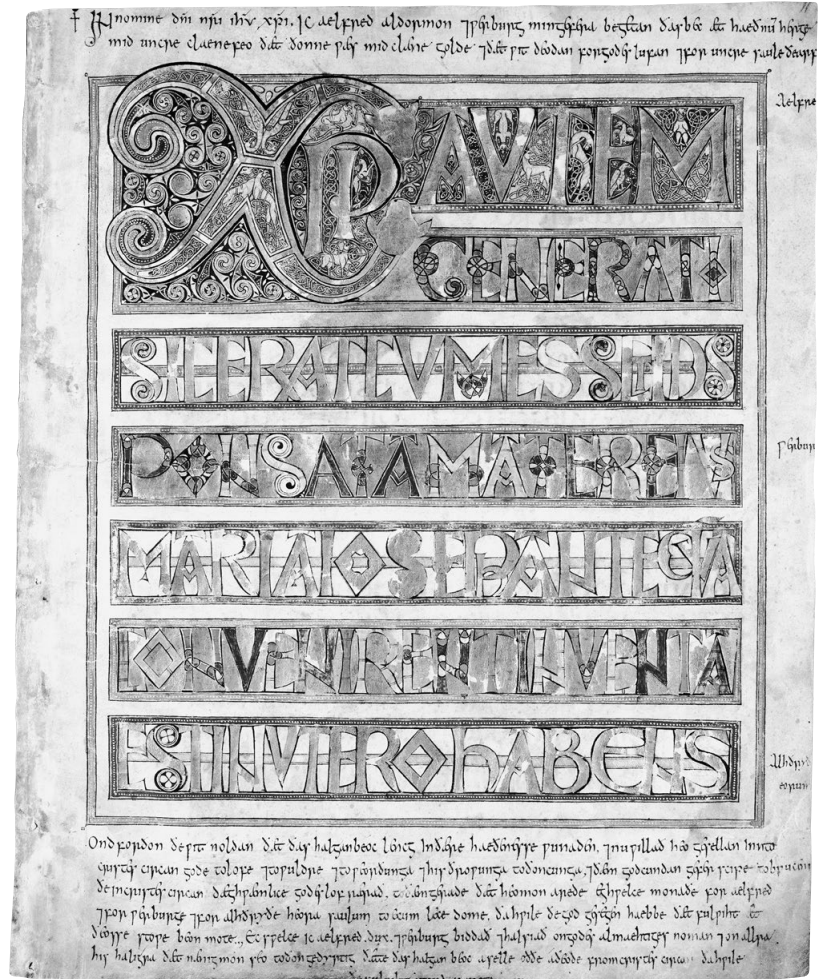 + In nomine dni nri ihu xpi. Ic aelfred aldormon ⁊ ƿerburg min gefera begetan ðas bec æt haeðnu herge
mid uncre claene feo ðæt ðonne ƿæs mid claene golde ⁊ ðæt ƿit deodan for godes lufan ⁊ for uncre saule ðearf
Aelfre
XPI AUTEM
GENERATI
SIC ERAT CUM ESSET DIS
PONSATA MATER EIUS
ƿerbur
MARIA IOSEPH ANTEQUA
CONVENIRENT INVENTA
EST IN UTERO HABENS
Alhðryð
eorum
Ond forðon ðe ƿit noldan ðæt ðas halgan beoc lencg in ðære haeðenesse ƿunaden, ⁊ nu ƿillað heo gesellan inn to
cristes circan gode to lofe ⁊ to ƿuldre ⁊ to ƿeorðunga, ⁊ his ðroƿunga to ðoncunga, ⁊ ðæm godcundan geferscipe to brucen
ðe in cristes circan dæghƿæmlice godes lof rærað, to ðæm gerade ðæt heo mon arede eghƿelce monaðe for aelfred
⁊ for ƿerburge ⁊ for alhðryðe heora saulum to ecum lecedome, ða hƿile ðe god gesegen haebbe ðæt fulƿiht æt
ðeosse stoƿe beon mote. Ec sƿelce ic aelfred dux ⁊ ƿerburg biddað ⁊ halsiað on godes almaehtiges noman ⁊ on allra
his haligra ðæt nænig mon seo to ðon gedyrstig ðætte ðas halgan beoc aselle oððe aðeode from cristes circan ða hƿile